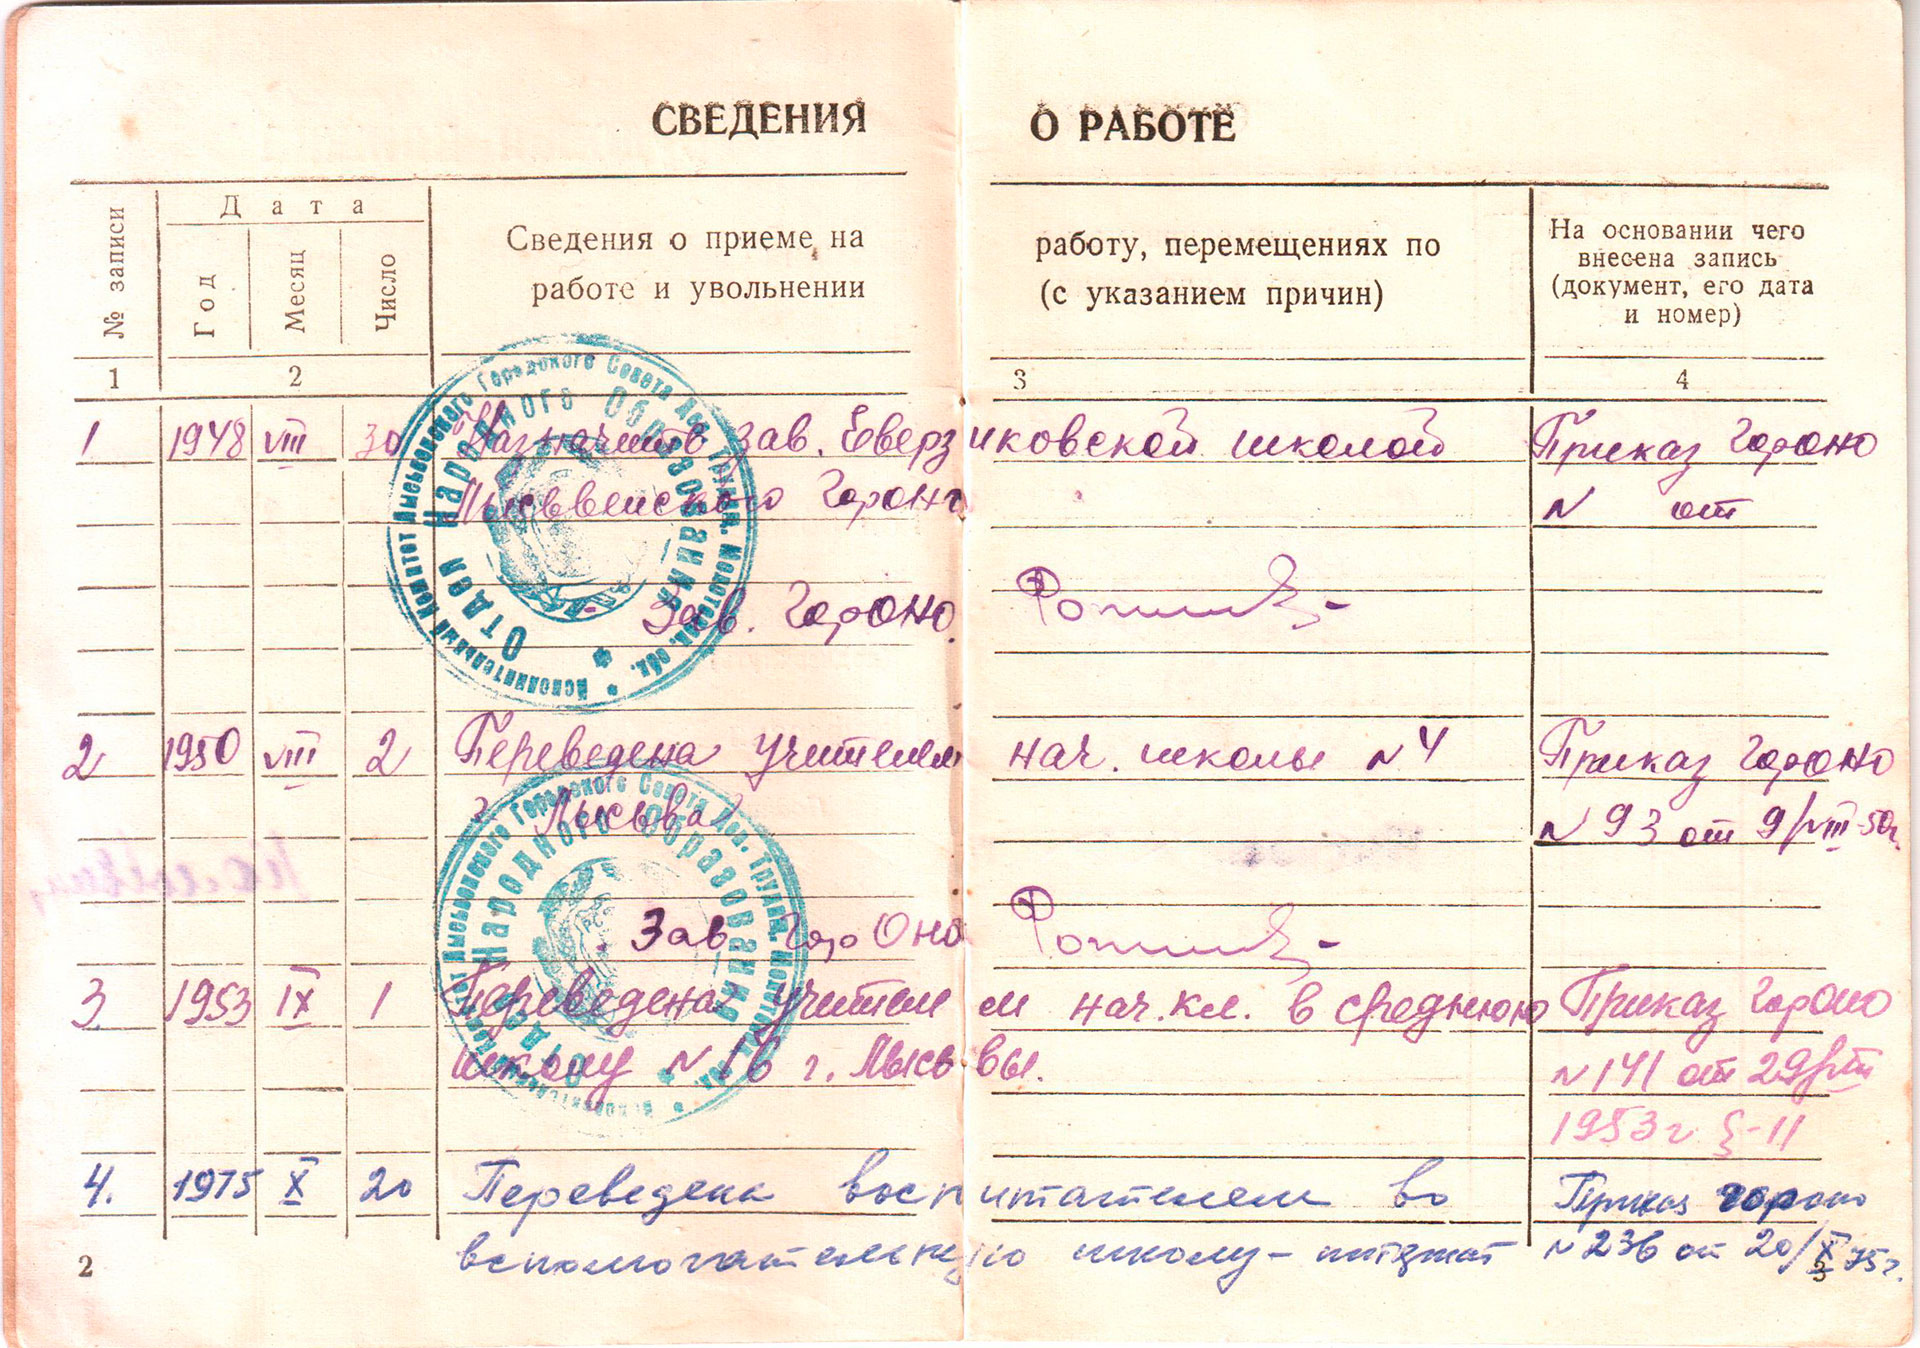 СВЕДЕНИЯ О РАБОТЕ
№ записи
Дата
Год
Месяц
Число
Сведения о приеме на работу, перемещениях по
работе и увольнении (с указанием причин)
На основании чего
внесена запись
(документ, его дата
и номер)
1 2 3 4
1 1948 VIII 30 Назначить зав. Еверзиковской школой Приказ Гороно
Лысьвенского Гороно N от
Зав. Гороно.
2 1950 VIII 2 Переведена учителем нач. школы N 4 Приказ Гороно
г. Лысьва N 93 от 9/VIII-50г.
Зав ГороОно
3 1953 IX 1 Переведена учителем нач. кл. в среднюю Приказ Гороно
школу N 16 г. Лысьвы. N 141 от 29/VIII
1953 г §-11
4. 1975 X 20 Переведена воспитателем во Приказ гороно
вспомогательную школу-интернат N 236 от 20/X 75г.
2
3
Исполнительный Комитет Лысьвенского Городского Совета Деп. Трудящ. Молотовск. обл.
Отдел Народного Образования
Исполнительный Комитет Лысьвенского Городского Совета Деп. Трудящ. Молотовск. обл.
Отдел Народного Образования